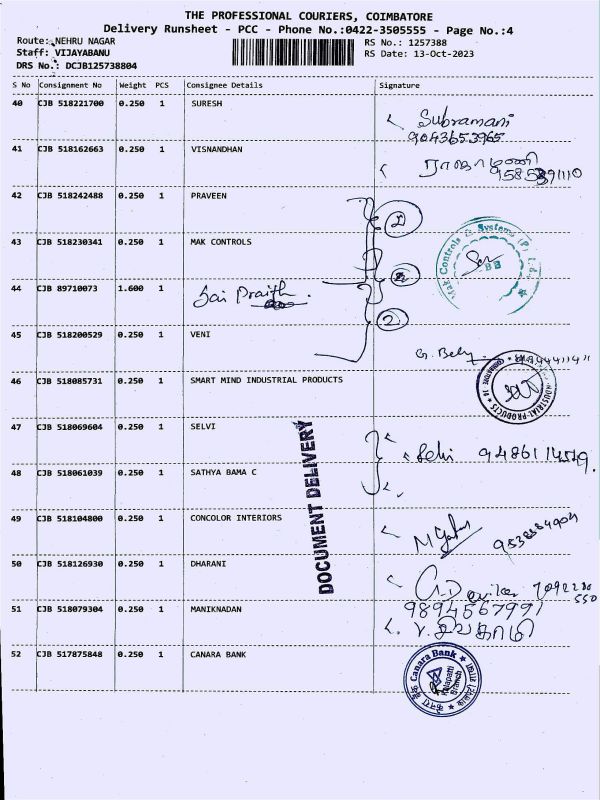 THE PROFESSIONAL COURIERS, COIMBATORE
Delivery Runsheet - PCC - Phone No.:0422-3505555 - Page No.:4
Route: NEHRU NAGAR RS No.: 1257388
Staff: VIJAYABANU RS Date: 13-Oct-2023
DRS No.: DCJB125738804
S No Consignment No Weight PCS Consignee Details Signature
40 CJB 518221700 0.250 1 SURESH Subramani
9043653965
41 CJB 518162663 0.250 1 VISNANDHAN ராஜாமணி
42 CJB 518242488 0.250 1 PRAVEEN
43 CJB 518230341 0.250 1 MAK CONTROLS Mak Controls & Systems (P) Ltd.
44 CJB 89710073 1.600 1 Sai Praith
45 CJB 518200529 0.250 1 VENI
46 CJB 518085731 0.250 1 SMART MIND INDUSTRIAL PRODUCTS INDUSTRIAL PRODUCTS
47 CJB 518069604 0.250 1 SELVI Selvi
48 CJB 518061039 0.250 1 SATHYA BAMA C
49 CJB 518104800 0.250 1 CONCOLOR INTERIORS
DOCUMENT DELIVERY
50 CJB 518126930 0.250 1 DHARANI
51 CJB 518079304 0.250 1 MANIKNADAN 9894567991
V. சிவகாமி
52 CJB 517875848 0.250 1 CANARA BANK Canara Bank
Kalapatti
Branch